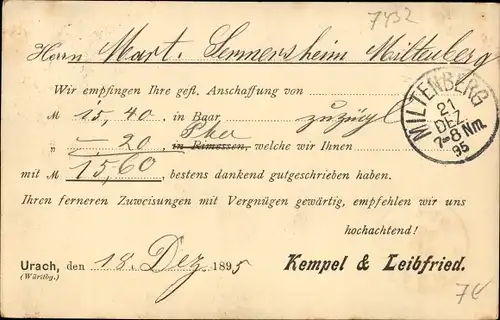 7432
Herrn Mart. Lennersheim Miltenberg
Wir empfingen Ihre gefl. Anschaffung von
M 15,40 in Baar zuzügl
„ – 20 in Rimessen, welche wir Ihnen
mit M 15,60, bestens dankend gutgeschrieben haben.
Ihren ferneren Zuweisungen mit Vergnügen gewärtig, empfehlen wir uns
hochachtend!
Urach, den 18. Dez. 1895 Kempel & Leibfried.
(Württbg.)
MILTENBERG
21
DEZ.
7-8 Nm.
95